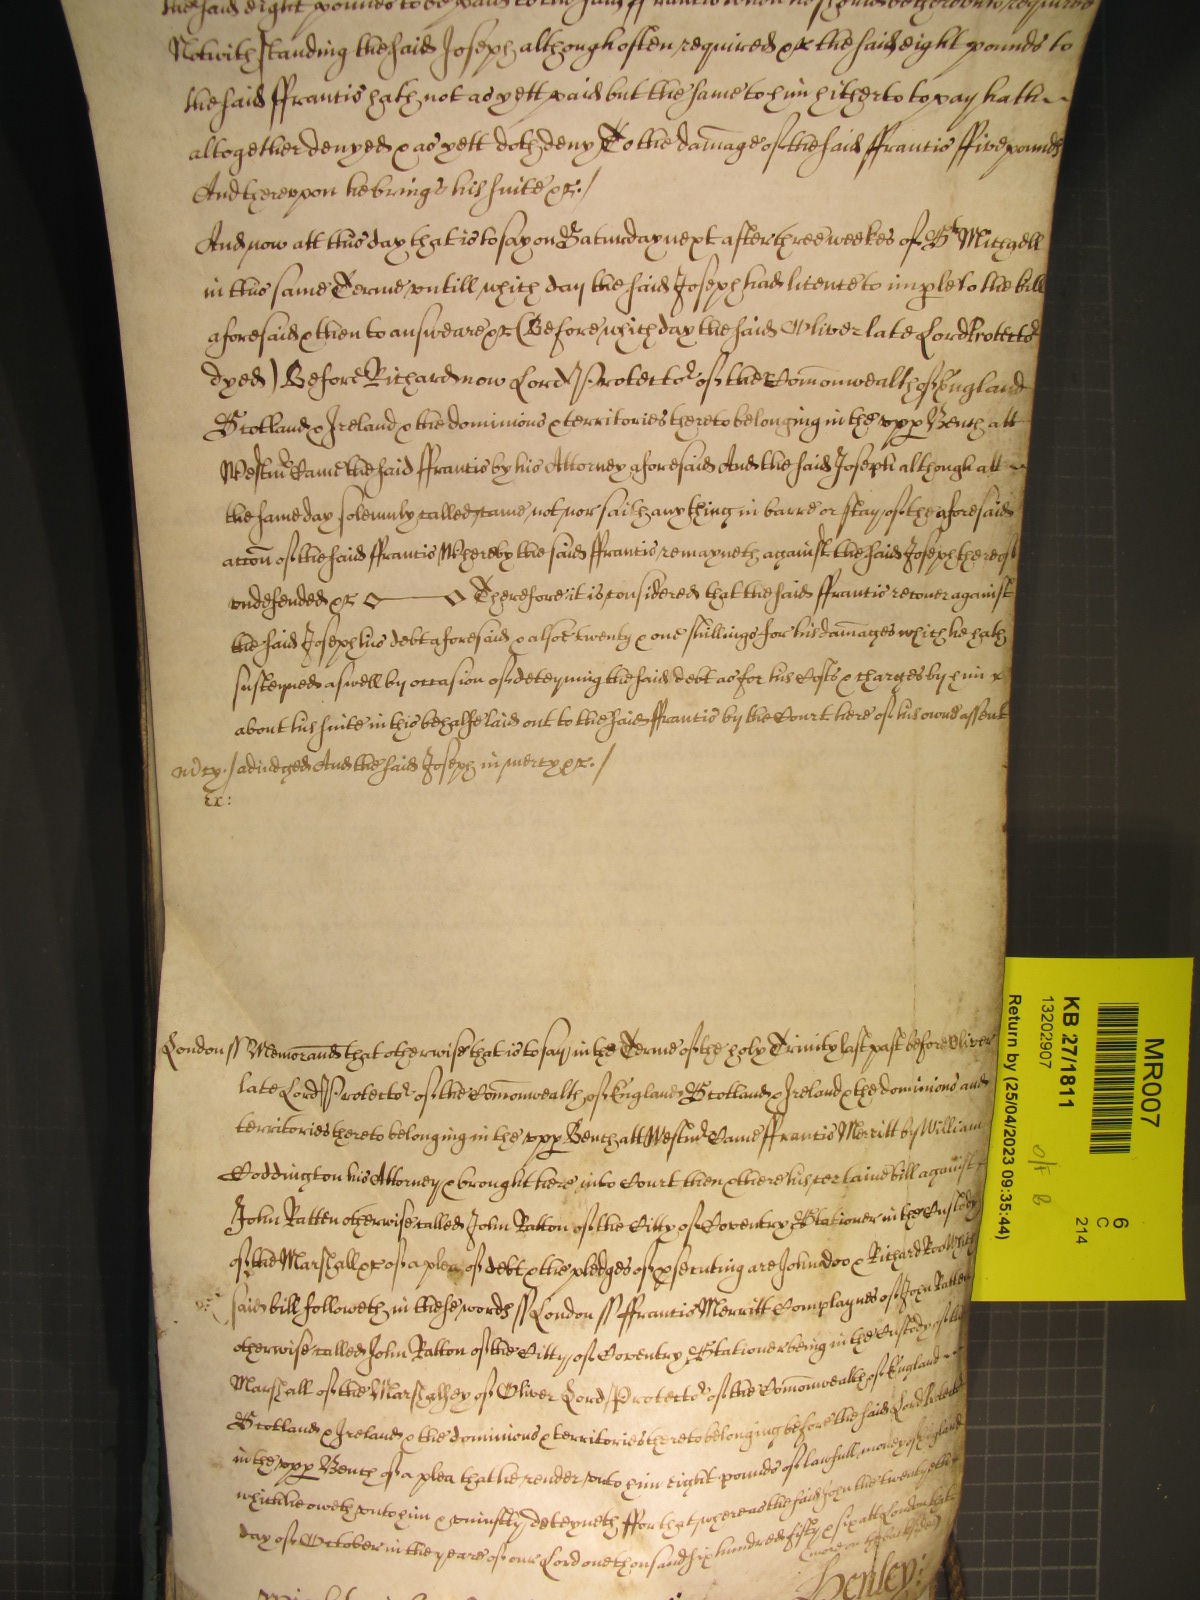 the said eight pounds to be paid to the said ffrancis when he should be thereunto required
Notwithstanding the said Joseph although often required &c the said eight pounds to
the said ffrancis hath not as yett paid but the same to him hitherto to pay hath
altogether denyed & as yett doth deny To the damage of the said ffrancis ffive pounds
And thereupon he brings his suite &c./
And now att this day that is to say on Saturday next after three weekes of St Michaell
in this same Terme untill which day the said Joseph had licence to imparle to the bill
aforesaid & then to answeare &c (Before which day the said Oliver late Lord Protector
dyed) Before Richard now Lord Protector of the Comonwealth of England
Scotland & Ireland & the dominions & territories thereto belonging in the upp Bench att
Westmr Came the said ffrancis by his Attorney aforesaid And the said Joseph although att
the same day solemnly called came not nor saith any thing in barre or stay of the aforesaid
accon of the said ffrancis Whereby the said ffrancis remayneth against the said Joseph thereof
undefended &c Therefore it is considered that the said ffrancis recover against
the said Joseph his debt aforesaid & alsoe twenty & one shillings for his damages which he hath
susteyned aswell by occasion of deteyning the said debt as for his Costs & charges by him &
about his suite in this behalfe laid out to the said ffrancis by the Court here of his owne assent
mcy./ adiudged And the said Joseph in mercy &c./
ex:
London ss Memorand that otherwise that is to say in the Terme of the holy Trinity last past before Oliver
late Lord Protector of the Comonwealth of England Scotland & Ireland & the dominions and
territories thereto belonging in the upp Bench att Westmr Came ffrancis Merritt by William
Coddington his Attorney & brought here into Court then & there his certaine bill against
John Ratten otherwise called John Ratton of the Citty of Coventry Stationer in the Custody
of the Marshall &c of a plea of debt & the pledges of psecuting are John doo & Richard Roo Which
said bill followeth in these words ss London ss ffrancis Merritt Complaynes of John Ratten
otherwise called John Ratton of the Citty of Coventry Stationer being in the Custody of the
Marshall of the Marshalsey of Oliver Lord Protector of the Comonwealth of England
Scotland & Ireland & the dominions & territories thereto belonging before the said Lord Protector
in the upp Bench of a plea that he render unto him eight pounds of lawfull money of England
which he oweth unto him & uniustly deteyneth ffor that whereas the said John the twentyeth
day of October in the yeare of our Lord one thousand six hundred fifty & six att London
(more on the backside)
Henley:
MR007
KB 27/1811
13202907
Return by (25/04/2023 09:35:44)
6
C
214
O/F B